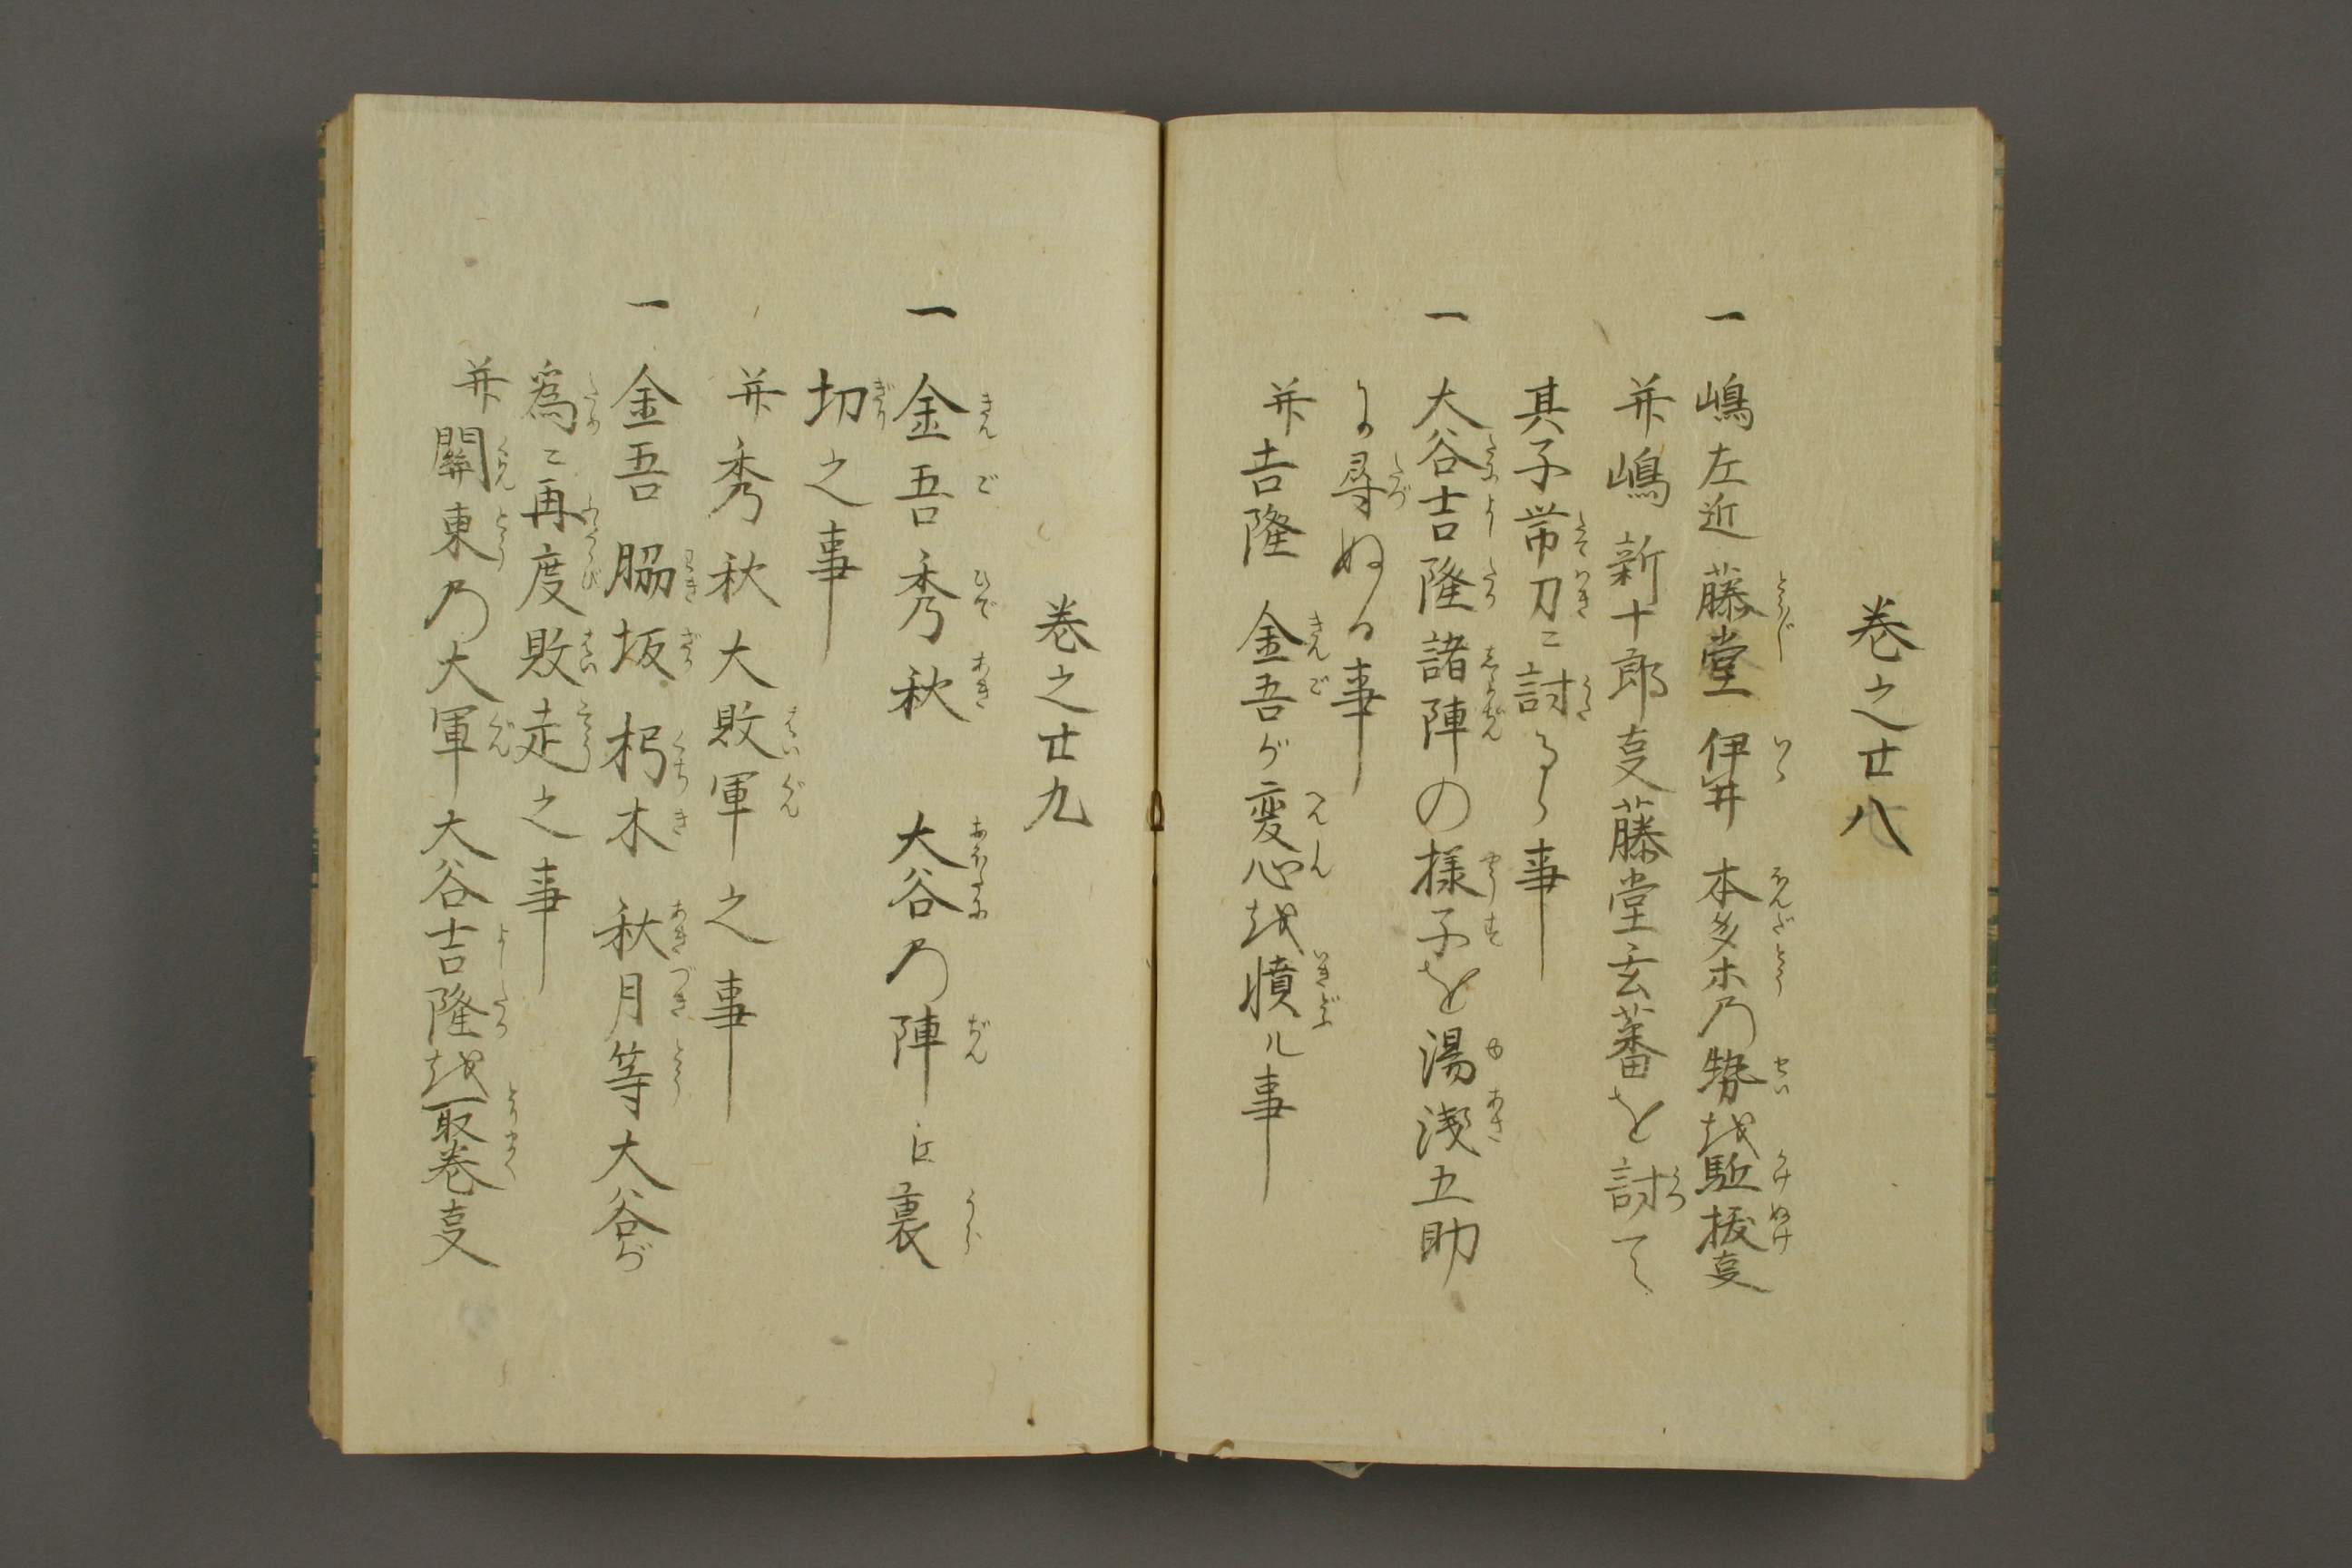 巻之廿八
一 嶋左近藤堂伊井本多ホ乃勢越駈抜叓
并嶋新十郎叓藤堂玄蕃を討て
其子帯刀ニ討るゝ事
一 大谷吉隆諸陣の様子を湯浅五助
に尋ぬる事
并吉隆金吾が変心越憤ル事
巻之廿九
一 金吾秀秋大谷乃陣江裏
切之事
并秀秋大敗軍之事
一 金吾脇坂朽木秋月等大谷が
為ニ再度敗走之事
并關東乃大軍大谷吉隆越取巻叓